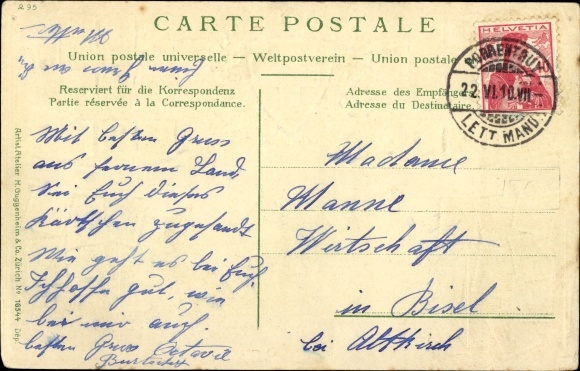 295
CARTE POSTALE
Union postale universelle — Weltpostverein — Union postale
Reserviert für die Korrespondenz
Partie réservée à la Correspondance.
Adresse des Empfänge
Adresse du Destinataire.
HELVETIA
PORRENTRUY
22.VI.10.VII
LETT MAND.
Mit besten Gruss
aus fernem Land
Sei Euch dieses
Kärtchen zugesandt
Wie geht es bei Euch.
Ich hoffe gut, wie
bei mir auch.
besten Gruss Octavie
Madame
Manne
Wirtschaft
in Bisel
bei Altkirch
Artist. Atelier H. Guggenheim & Co. Zürich No 16544 Dep.